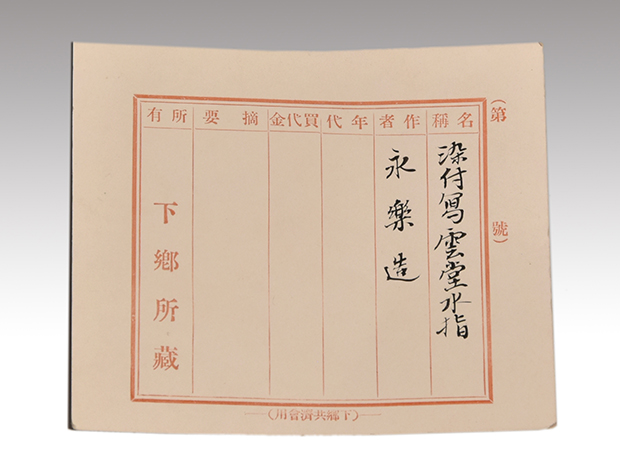 (第　號)
名稱
染付寫雲堂水指
作者
永樂造
年代
買代金
摘要
所有
下鄉所藏
(下鄉共濟會用)